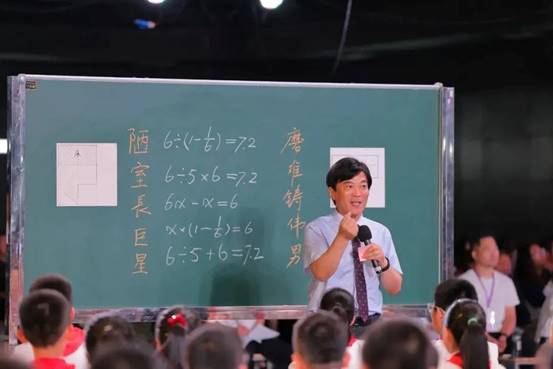 陋室長巨星
6÷(1-1/6)=7.2
6÷5×6=7.2
6x-x=6
x×(1-1/6)=6
6÷5+6=7.2
磨难铸伟男